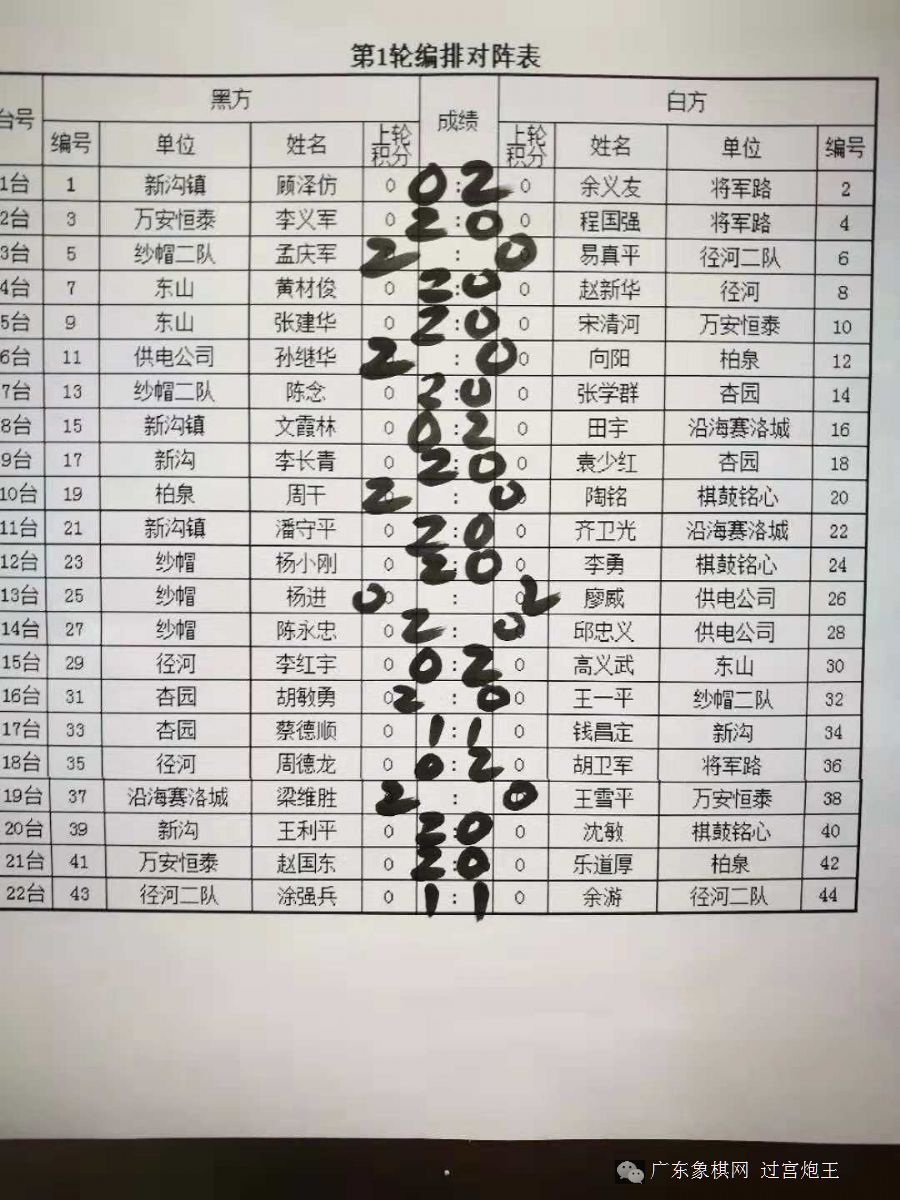 第1轮编排对阵表
台号 黑方 成绩 白方
编号 单位 姓名 上轮积分 上轮积分 姓名 单位 编号
1台 1 新沟镇 顾泽仿 0 0:2 0 余义友 将军路 2
2台 3 万安恒泰 李义军 0 2:0 0 程国强 将军路 4
3台 5 纱帽二队 孟庆军 2 : 0 易真平 径河二队 6
4台 7 东山 黄材俊 0 2:0 0 赵新华 径河 8
5台 9 东山 张建华 0 2:0 0 宋清河 万安恒泰 10
6台 11 供电公司 孙继华 2 : 0 0 向阳 柏泉 12
7台 13 纱帽二队 陈念 0 2:0 0 张学群 杏园 14
8台 15 新沟镇 文霞林 0 0:2 0 田宇 沿海赛洛城 16
9台 17 新沟 李长青 0 2:0 0 袁少红 杏园 18
10台 19 柏泉 周干 2 : 0 陶铭 棋鼓铭心 20
11台 21 新沟镇 潘守平 0 2:0 0 齐卫光 沿海赛洛城 22
12台 23 纱帽 杨小刚 0 2:0 0 李勇 棋鼓铭心 24
13台 25 纱帽 杨进 0 0 : 0 2 廖威 供电公司 26
14台 27 纱帽 陈永忠 0 2 : 0 邱忠义 供电公司 28
15台 29 径河 李红宇 0 0:2 0 高义武 东山 30
16台 31 杏园 胡敏勇 0 2 : 0 0 王一平 纱帽二队 32
17台 33 杏园 蔡德顺 0 1:1 0 钱昌定 新沟 34
18台 35 径河 周德龙 0 0:2 0 胡卫军 将军路 36
19台 37 沿海赛洛城 梁维胜 2 : 0 王雪平 万安恒泰 38
20台 39 新沟 王利平 0 2:0 0 沈敏 棋鼓铭心 40
21台 41 万安恒泰 赵国东 0 2:0 0 乐道厚 柏泉 42
22台 43 径河二队 涂强兵 0 1:1 0 余游 径河二队 44
广东象棋网 过宫炮王